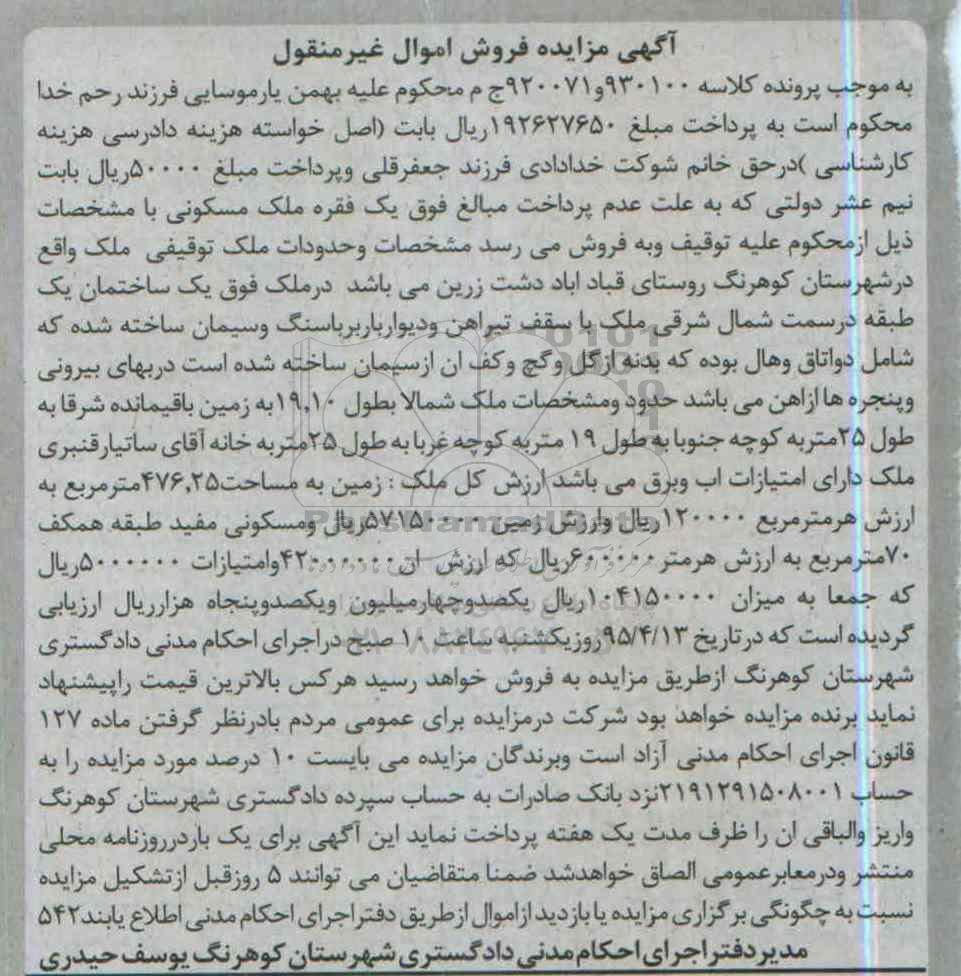 آگهی مزایده فروش اموال غیرمنقول
به موجب پرونده کلاسه ۹۳۰۱۰۰و۹۲۰۰۷۱ج م محکوم علیه بهمن یارموسایی فرزند رحم خدا
محکوم است به پرداخت مبلغ ۱۹۲۶۲۷۶۵۰ریال بابت (اصل خواسته هزینه دادرسی هزینه
کارشناسی )درحق خانم شوکت خدادادی فرزند جعفرقلی وپرداخت مبلغ ۵۰۰۰۰ریال بابت
نیم عشر دولتی که به علت عدم پرداخت مبالغ فوق یک فقره ملک مسکونی با مشخصات
ذیل ازمحکوم علیه توقیف وبه فروش می رسد مشخصات وحدودات ملک توقیفی ملک واقع
درشهرستان کوهرنگ روستای قباد اباد دشت زرین می باشد درملک فوق یک ساختمان یک
طبقه درسمت شمال شرقی ملک با سقف تیراهن ودیوارباربرباسنگ وسیمان ساخته شده که
شامل دواتاق وهال بوده که بدنه ازگل وگچ وکف ان ازسیمان ساخته شده است دربهای بیرونی
وپنجره ها ازاهن می باشد حدود ومشخصات ملک شمالا بطول ۱۹,۱۰به زمین باقیمانده شرقا به
طول ۲۵متربه کوچه جنوبا به طول ۱۹ متربه کوچه غربا به طول ۲۵متربه خانه آقای ساتیارقنبری
ملک دارای امتیازات اب وبرق می باشد ارزش کل ملک : زمین به مساحت۴۷۶,۲۵مترمربع به
ارزش هرمترمربع ۱۲۰۰۰۰ریال وارزش زمین ۵۷۱۵۰۰۰۰ریال ومسکونی مفید طبقه همکف
۷۰مترمربع به ارزش هرمتر ۶۰۰۰۰۰ریال که ارزش ان ۴۲۰۰۰۰۰۰وامتیازات ۵۰۰۰۰۰۰ریال
که جمعا به میزان ۱۰۴۱۵۰۰۰۰ریال یکصدوچهارمیلیون ویکصدوپنجاه هزارریال ارزیابی
گردیده است که درتاریخ ۹۵/۴/۱۳روزیکشنبه ساعت ۱۰ صبح دراجرای احکام مدنی دادگستری
شهرستان کوهرنگ ازطریق مزایده به فروش خواهد رسید هرکس بالاترین قیمت راپیشنهاد
نماید برنده مزایده خواهد بود شرکت درمزایده برای عمومی مردم بادرنظر گرفتن ماده ۱۲۷
قانون اجرای احکام مدنی آزاد است وبرندگان مزایده می بایست ۱۰ درصد مورد مزایده را به
حساب ۲۱۹۱۲۹۱۵۰۸۰۰۱نزد بانک صادرات به حساب سپرده دادگستری شهرستان کوهرنگ
واریز والباقی ان را ظرف مدت یک هفته پرداخت نماید این آگهی برای یک باردرروزنامه محلی
منتشر ودرمعابرعمومی الصاق خواهدشد ضمنا متقاضیان می توانند ۵ روزقبل ازتشکیل مزایده
نسبت به چگونگی برگزاری مزایده یا بازدید ازاموال ازطریق دفتراجرای احکام مدنی اطلاع یابند۵۴۲
مدیردفتراجرای احکام مدنی دادگستری شهرستان کوهرنگ یوسف حیدری